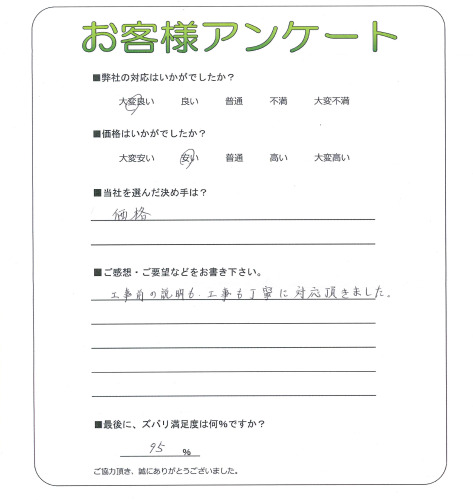 お客様アンケート
■弊社の対応はいかがでしたか？
大変良い 良い 普通 不満 大変不満
■価格はいかがでしたか？
大変安い 安い 普通 高い 大変高い
■当社を選んだ決め手は？
価格
■ご感想・ご要望などをお書き下さい。
工事前の説明も、工事も丁寧に対応頂きました。
■最後に、ズバリ満足度は何%ですか？
95 %
ご協力頂き、誠にありがとうございました。